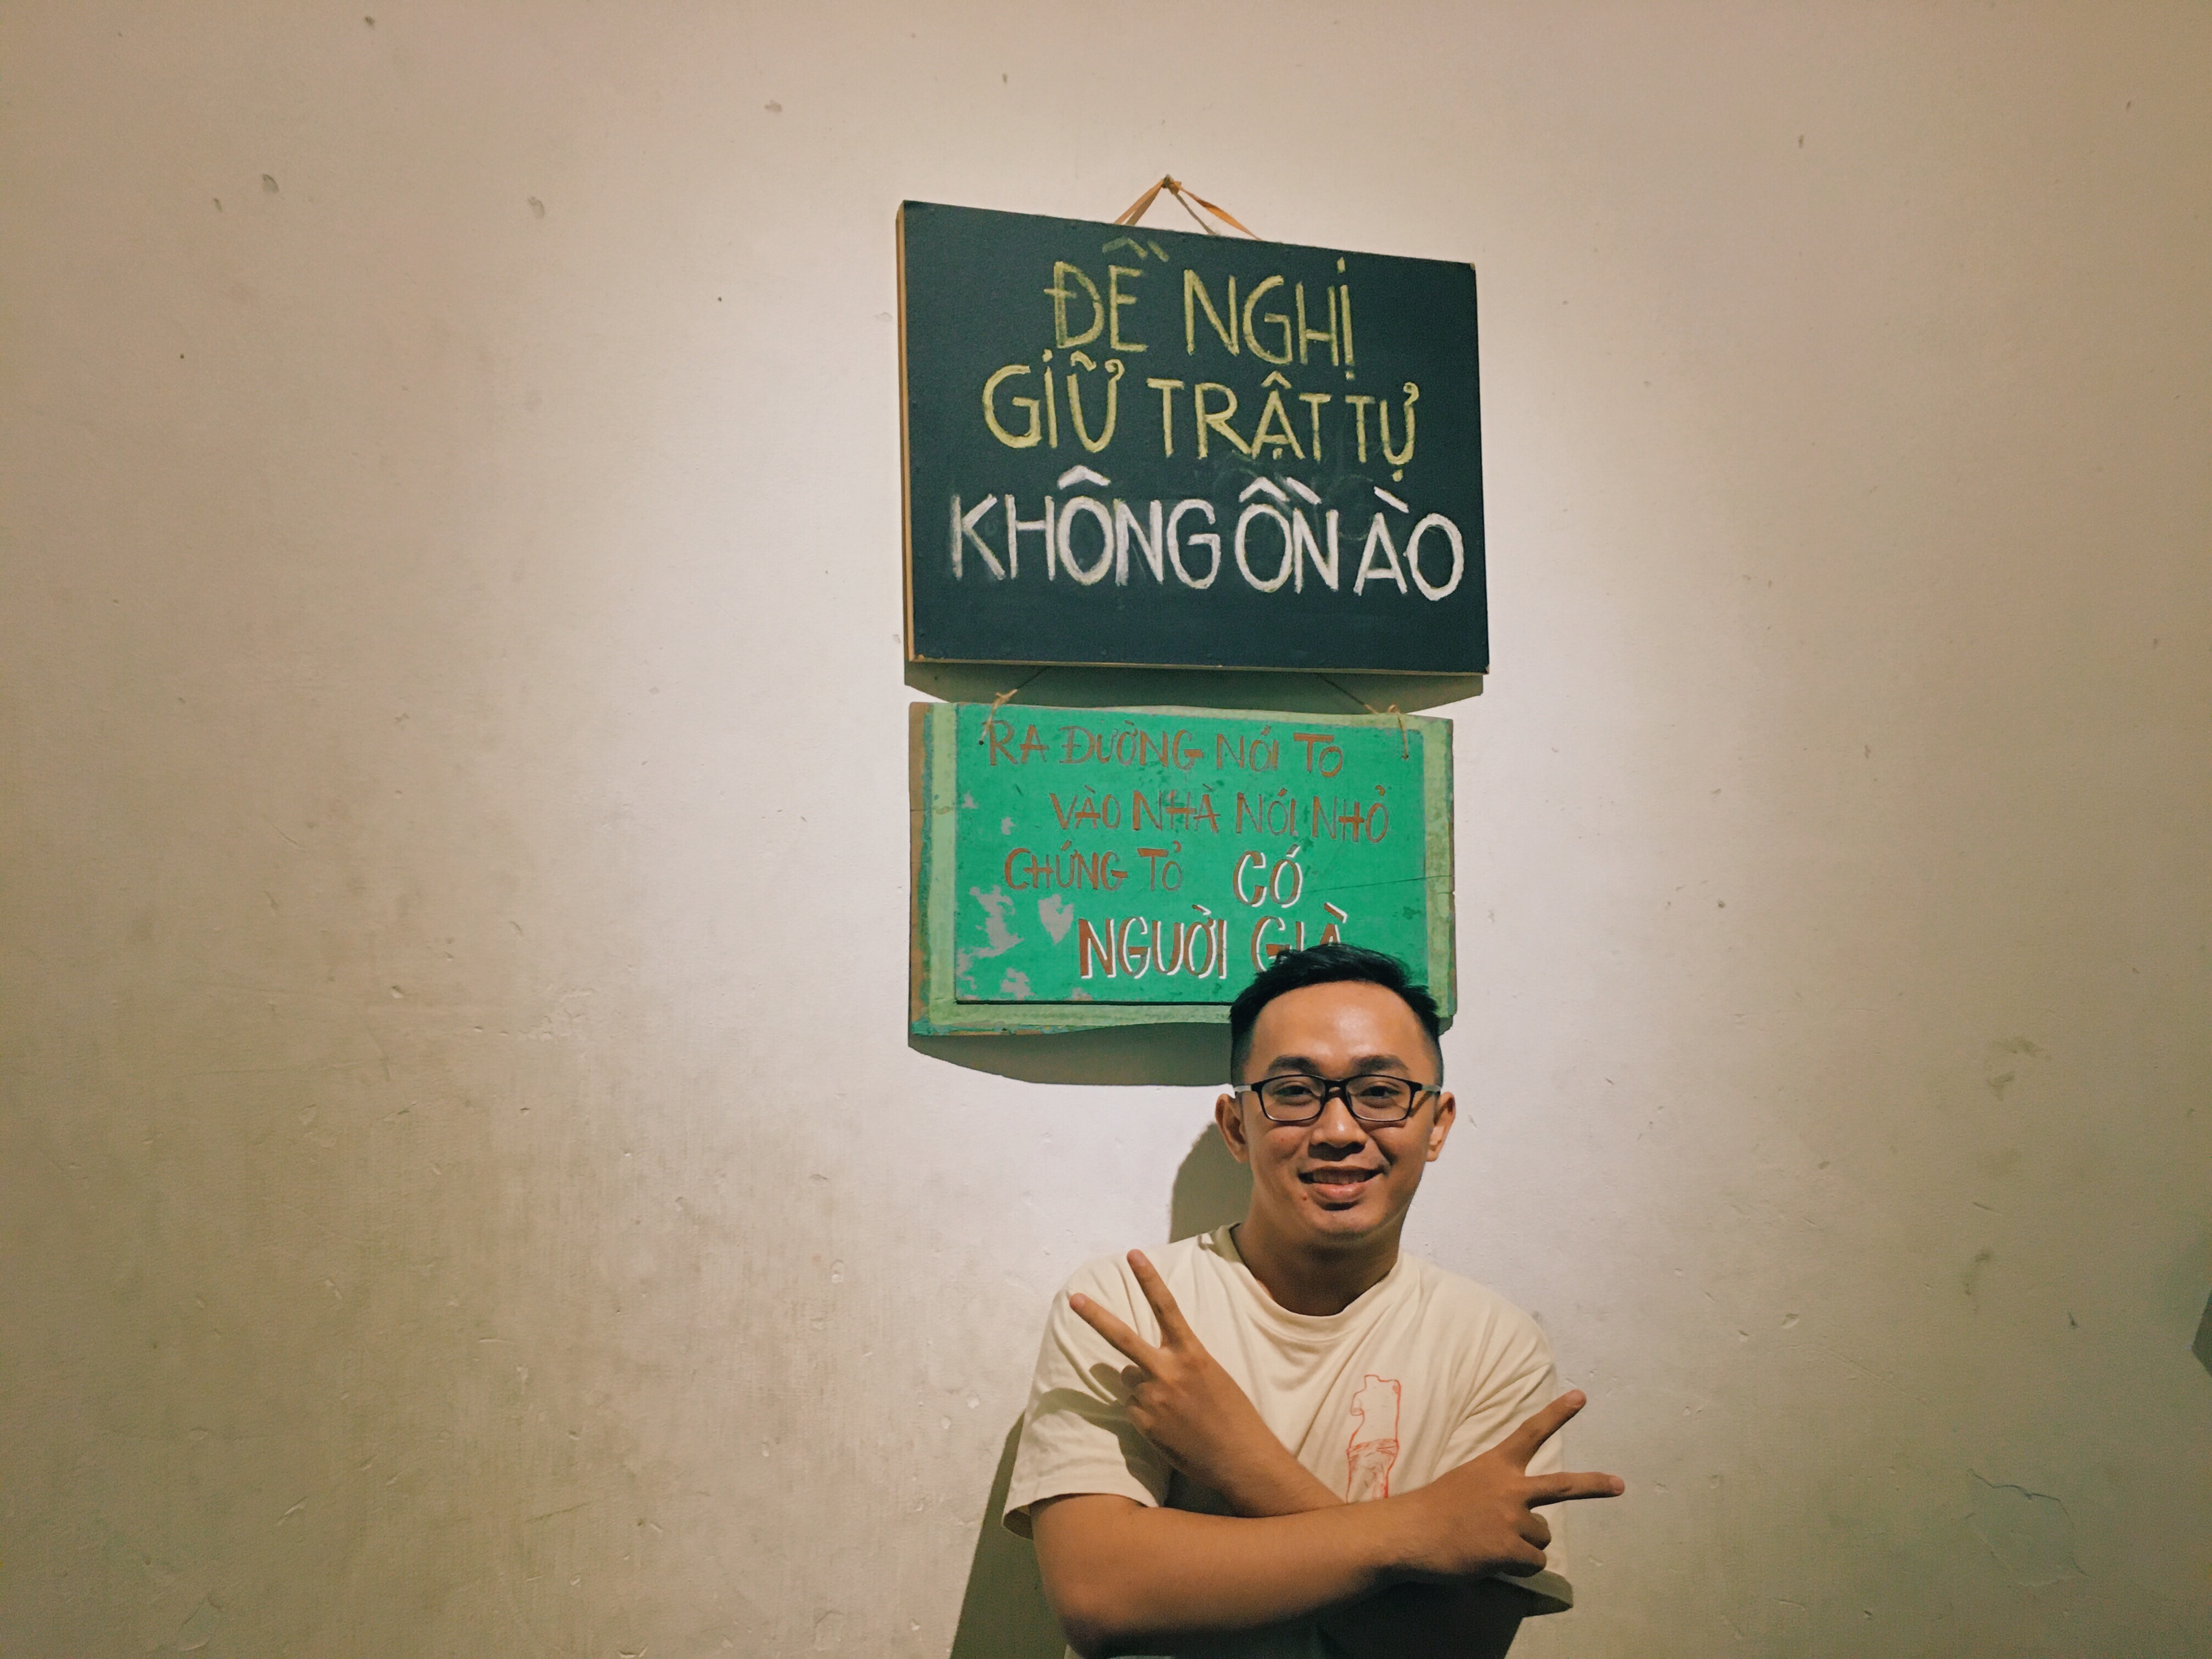 ĐỀ NGHỊ
GIỮ TRẬT TỰ
KHÔNG ỒN ÀO
RA ĐƯỜNG NÓI TO
VÀO NHÀ NÓI NHỎ
CHỨNG TỎ CÓ
NGƯỜI GIÀ